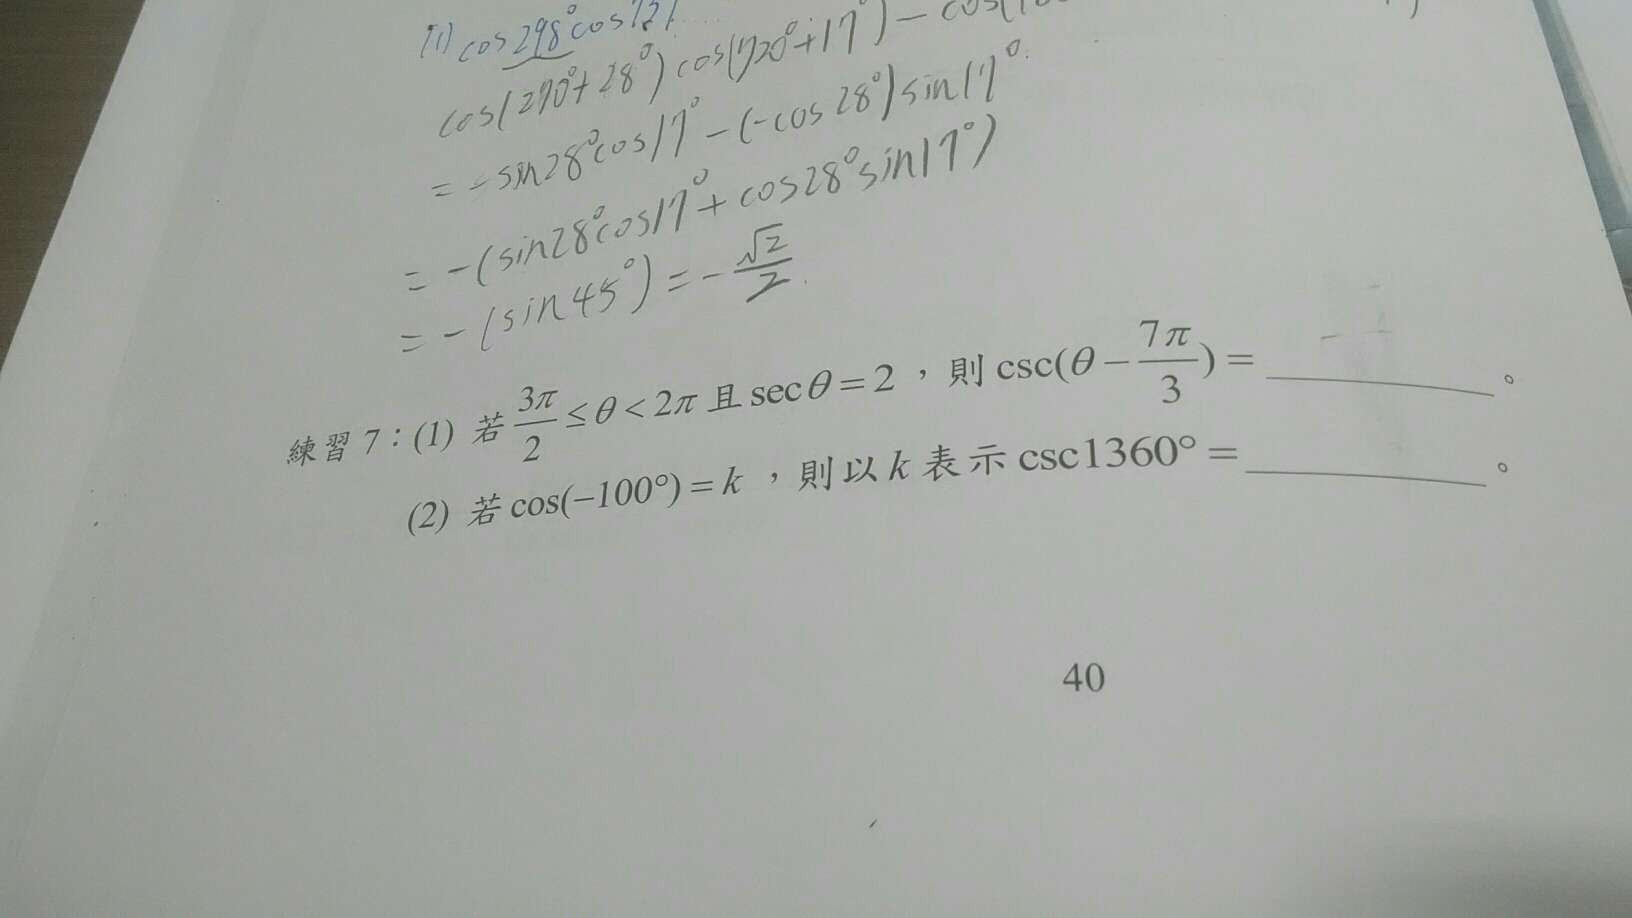 (1) cos298°cos737
cos(270°+28°)cos(720°+17°)-cos(
= -sin28°cos17°-(-cos28°)sin17°
= -(sin28°cos17°+cos28°sin17°)
= -(sin45°)=-√2/2
練習 7：(1) 若 3π/2 ≤ θ < 2π 且 sec θ = 2 ，則 csc(θ - 7π/3) = ________。
(2) 若 cos(-100°) = k ，則以 k 表示 csc1360° = ________。
40